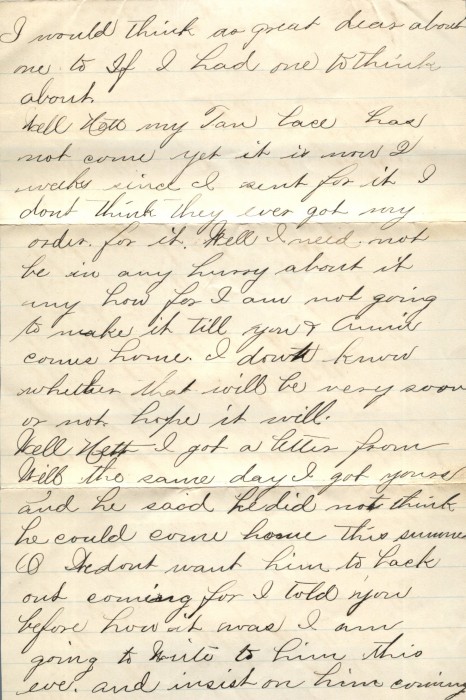 I would think as great deas about
one to If I had one to think
about.
Well Nett my Tan lace has
not come yet it is now 2
weeks since I sent for it I
dont think they ever got my
order. for it. Well I need not
be in any hurry about it
any how for I am not going
to make it till you & Annie
comes home. I dont know
whether that will be very soon
or not hope it will.
Well Nett I got a letter from
Will the same day I got yours
and he said he did not think
he could come home this summer
O I dont want him to back
out coming for I told you
before how it was I am
going to write to him this
eve. and insist on him coming